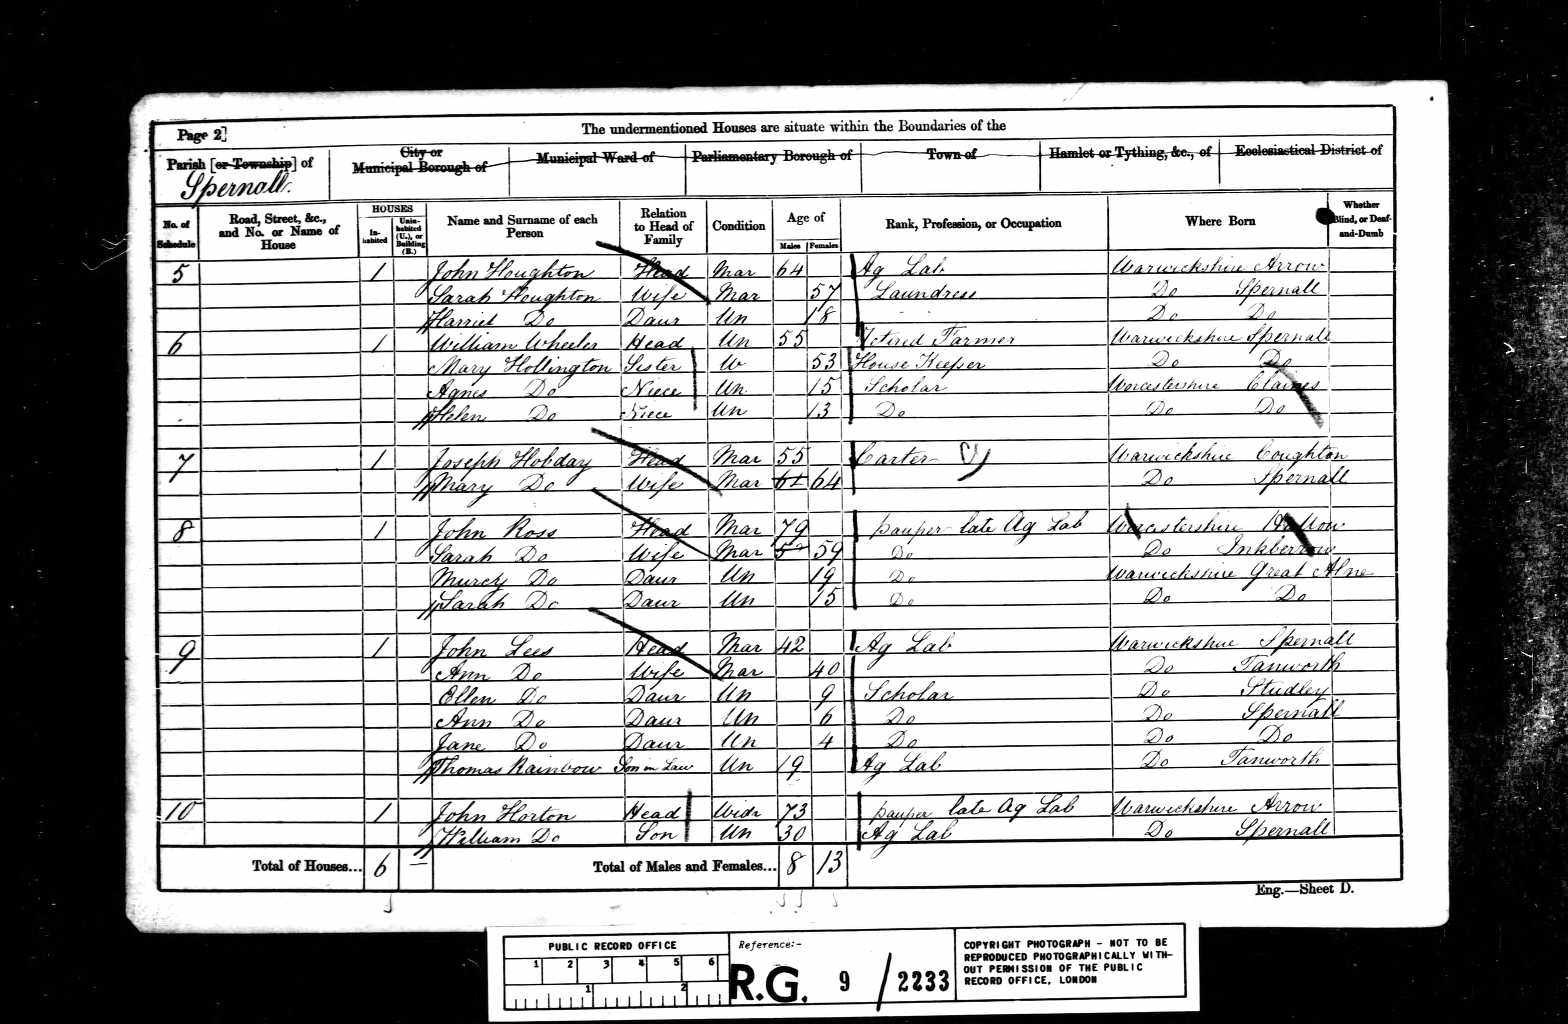 Page 2]
The undermentioned Houses are situate within the Boundaries of the
Parish [or Township] of
Spernall.
City or Municipal Borough of
Municipal Ward of
Parliamentary Borough of
Town of
Hamlet or Tything, &c., of
Ecclesiastical District of
No. of Schedule
Road, Street, &c., and No. or Name of House
HOUSES
Inhabited
Uninhabited (U.), or Building (B.)
Name and Surname of each Person
Relation to Head of Family
Condition
Age of
Males
Females
Rank, Profession, or Occupation
Where Born
Whether Blind, or Deaf-and-Dumb
5 1 John Houghton Head Mar 64 Ag Lab Warwickshire Arrow
Sarah Houghton Wife Mar 57 Laundress Do Spernall
Harriet Do Daur Un 18 Do Do
6 1 William Wheeler Head Un 55 Retired Farmer Warwickshire Spernall
Mary Hollington Sister W 53 House Keeper Do Do
Agnes Do Niece Un 15 Scholar Worcestershire Claines
Helen Do Niece Un 13 Do Do Do
7 1 Joseph Hobday Head Mar 55 Carter Warwickshire Coughton
Mary Do Wife Mar 64 Do Spernall
8 1 John Ross Head Mar 79 pauper late Ag Lab Worcestershire
Sarah Do Wife Mar 59 Do Do Inkberrow
Murcy Do Daur Un 19 Do Warwickshire Great Alne
Sarah Do Daur Un 15 Do Do Do
9 1 John Lees Head Mar 42 Ag Lab Warwickshire Spernall
Ann Do Wife Mar 40 Do Tanworth
Ellen Do Daur Un 9 Scholar Do Studley
Ann Do Daur Un 6 Do Do Spernall
Jane Do Daur Un 4 Do Do Do
Thomas Rainbow Son in Law Un 19 Ag Lab Do Tanworth
10 1 John Horton Head Widr 73 pauper late Ag Lab Warwickshire Arrow
William Do Son Un 30 Ag Lab Do Spernall
Total of Houses... 6 — Total of Males and Females... 8 13
Eng.—Sheet D.
PUBLIC RECORD OFFICE
1 2 3 4 5 6
1 2
Reference:-
R.G. 9 / 2233
COPYRIGHT PHOTOGRAPH - NOT TO BE
REPRODUCED PHOTOGRAPHICALLY WITH-
OUT PERMISSION OF THE PUBLIC
RECORD OFFICE, LONDON